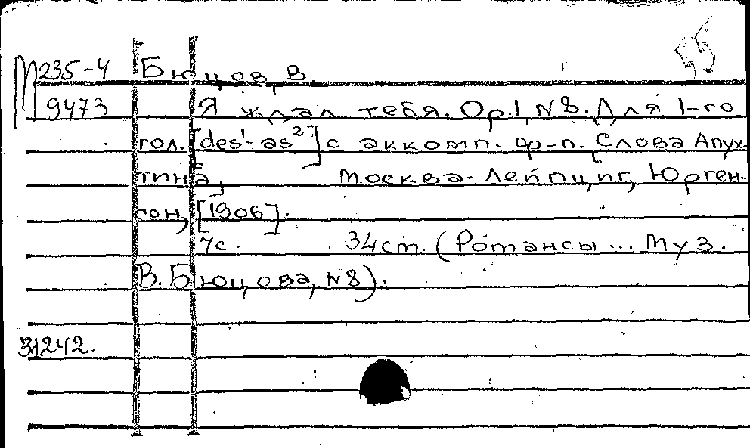 М 235-4 Бюцов, В.
9473 Я ждал тебя. Op.1, N8. Для 1-го
гол. [des¹-as²] с аккомп. ф-п. Слова Апух-
тина, Москва-Лейпциг, Юрген-
сон, [1906].
7с. 34см. (Романсы... муз.
В. Бюцова, N8).
31242.